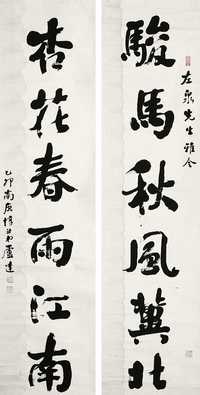 駿馬秋風冀北
左泉先生雅令
杏花春雨江南
乙卯